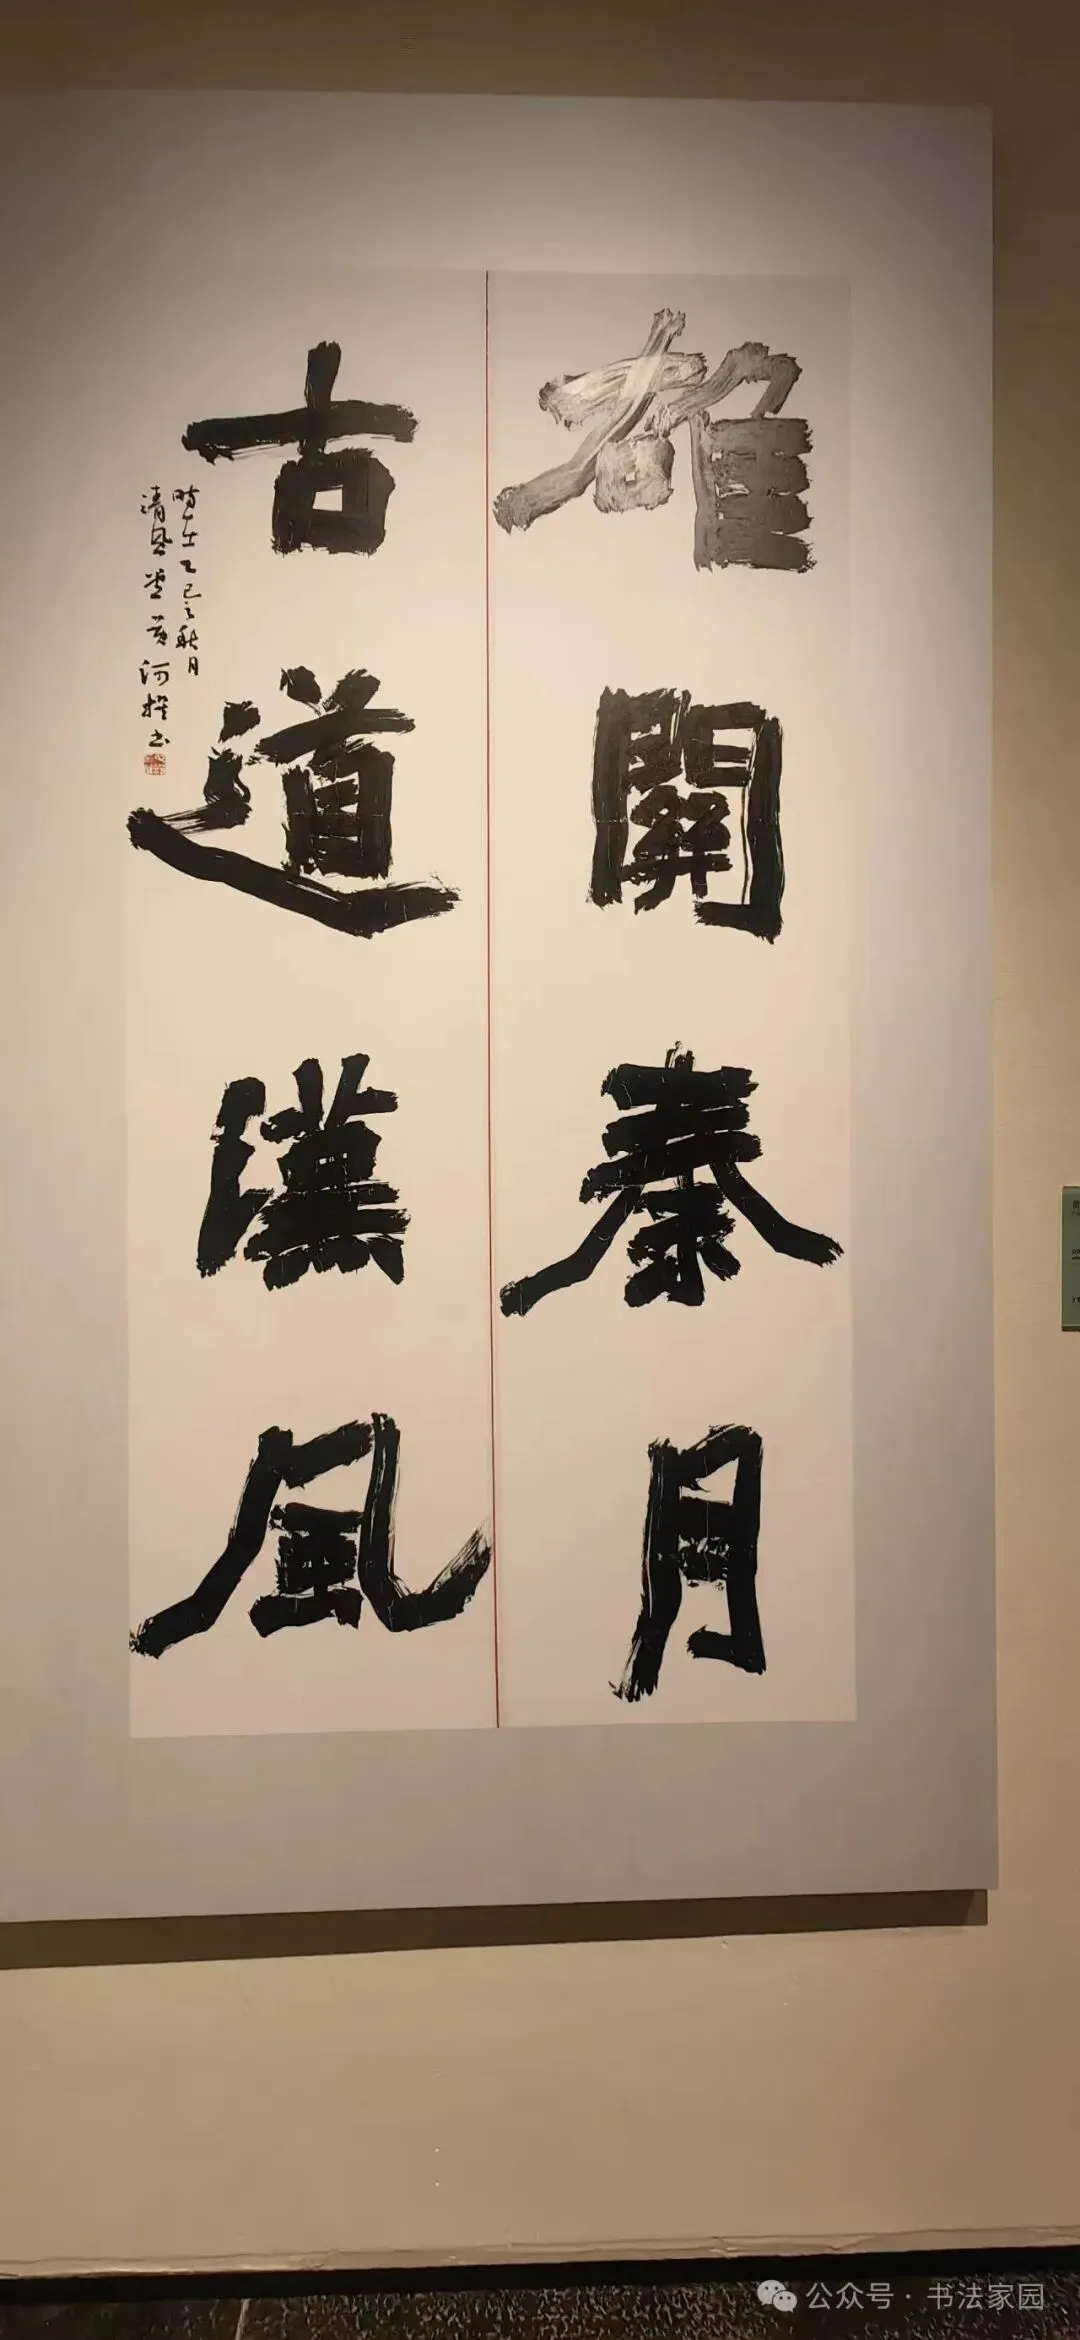 雄關秦月
古道漢風
時在乙巳之秋月
清風堂黃河撰書
公众号·书法家园